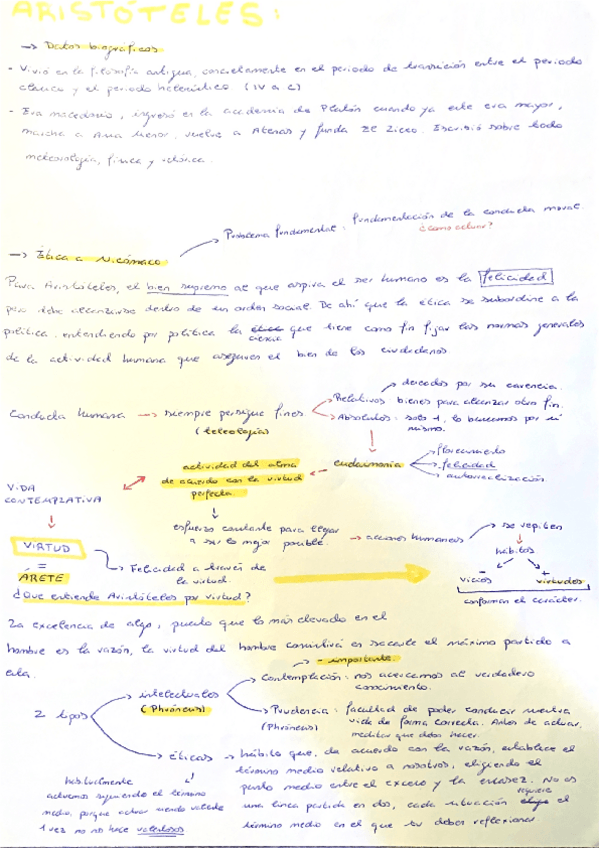 ARISTÓTELES:
→ Datos biográficos
- Vivió en la filosofía antigua, concretamente en el periodo de transición entre el periodo
clásico y el periodo helenístico (IV a C)
- Era macedonio, ingresó en la academia de Platón cuando ya este era mayor,
marcha a Asia Menor, vuelve a Atenas y funda El Liceo. Escribió sobre todo
meteorología, física y retórica.
Problema fundamental: fundamentación de la conducta moral.
¿Cómo actuar?
→ Ética a Nicómaco:
Para Aristóteles, el bien supremo al que aspira el ser humano es la felicidad
pero debe alcanzarse dentro de un orden social. De ahí que la ética se subordine a la
política, entendiendo por política la ciencia que tiene como fin fijar las normas generales
de la actividad humana que aseguren el bien de los ciudadanos.
→ deseados por su carencia.
Conducta humana → siempre persigue fines
(teleología)
→ Relativos: bienes para alcanzar otro fin.
→ Absolutos: solo 1, lo buscamos por sí
mismo.
eudaimonía
→ florecimiento
→ felicidad
→ autorrealización.
actividad del alma
de acuerdo con la virtud
perfecta.
VIDA
CONTEMPLATIVA
esfuerzo constante para llegar
a ser lo mejor posible.
→ acciones humanas
→ se repiten
hábitos
- vicios
+ virtudes
conforman el carácter.
VIRTUD
=
ARETE
→ Felicidad a través de
la virtud.
¿Que entiende Aristóteles por virtud?
La excelencia de algo, puesto que lo más elevado en el
hombre es la razón, la virtud del hombre consistirá en sacarle el máximo partido a
ella.
- importante.
2 tipos
→ intelectuales
(Phróneus)
→ Contemplación: nos acercamos al verdadero
conocimiento.
→ Prudencia: facultad de poder conducir nuestra
(Phróneus) vida de forma correcta. Antes de actuar,
meditar que debes hacer.
→ éticas → hábito que, de acuerdo con la razón, establece el
término medio relativo a nosotros, eligiendo el
punto medio entre el exceso y la escasez. No es
una línea partida en dos, cada situación requiere el
término medio en el que tu debes reflexionar
habitualmente
actuemos siguiendo el término
medio, porque actuar siendo valiente
1 vez no nos hace valerosos